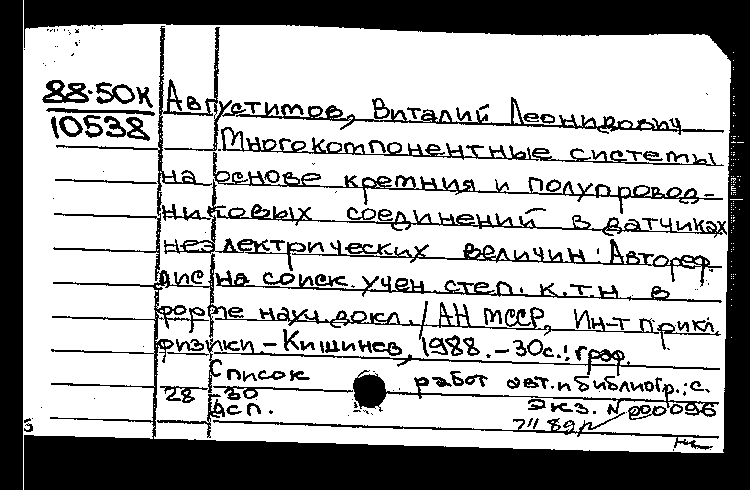 88-50К
10538
Августимов, Виталий Леонидович
Многокомпонентные системы
на основе кремния и полупровод-
никовых соединений в датчиках
неэлектрических величин: Автореф.
дис на соиск. учен. степ. к.т.н. в
форме науч. докл. / АН МССР, Ин-т прикл.
физики. - Кишинев, 1988. - 30с.: граф.
Список работ авт. и библиогр.: с.
28-30
Дсп. Экз. N 000096